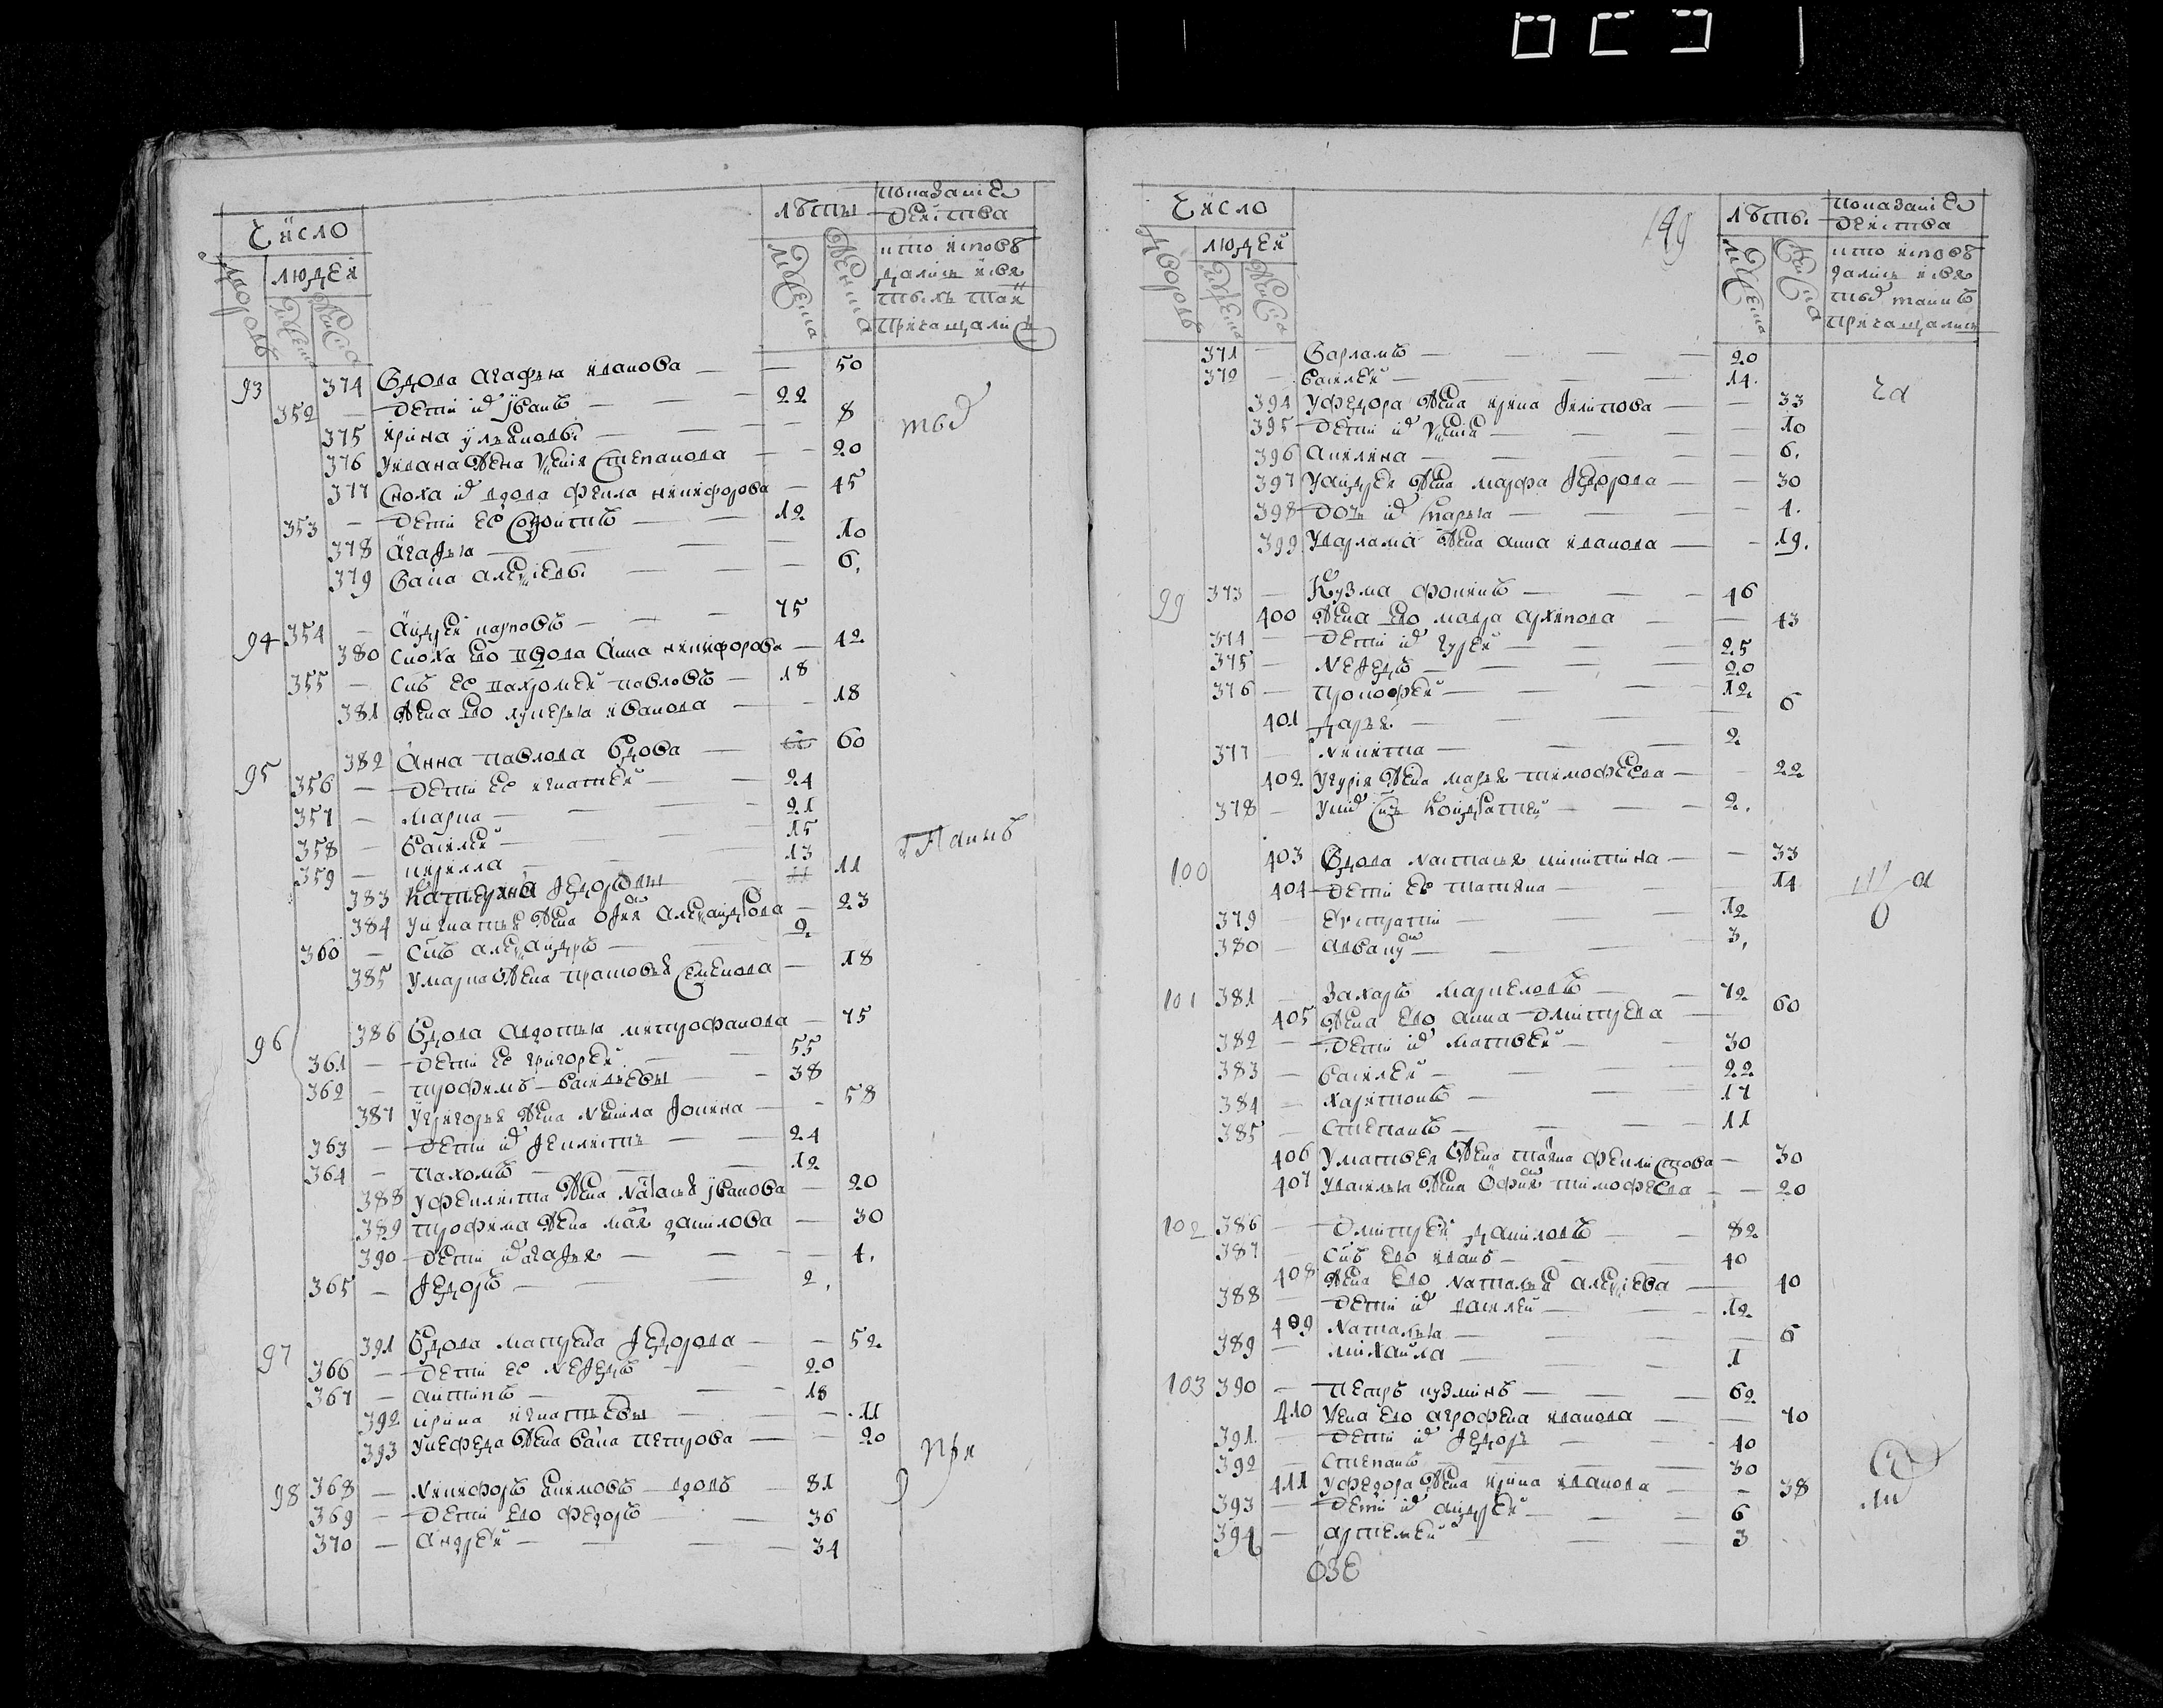 Число
лѣты
показание
действа
людей
дворовъ
мужеска
женска
кто исповѣ
дались и свя
тыхъ таин
причащались
93 374 вдова агафья иванова — 50
352 — дети их иванъ — 22
375 ирина ульяновы — 8
376 у ивана жена Степанова — 20
377 сноха их вдова фекла никифорова — 45
353 — дети ее — 12
378 агафья — 10
379 алексиевы — 6.
94 354 — андрей карповъ — 75
380 сноха ево вдова анна никифорова — 42
355 — снъ ее пахомей павловъ — 18
381 жена ево лукерья иванова — 18
95 382 анна павлова вдова — 60
356 — дети ее игнатей — 24
357 — марка — 21
358 — василей — 15
359 — кирилла — 13
383 катерина федоровы — 11
384 у игнатья жена софия александрова — 23
360 — снъ александръ — 2.
385 у марка жена прасковья семенова — 18
96 386 вдова авдотья митрофанова — 75
361 — дети ее григорей — 55
362 — трофимъ васильевы — 38
387 у григорья жена фокина — 58
363 — дети их феклистъ — 24
364 — пахомъ — 12
388 у феклиста жена иванова — 20
389 трофима жена данилова — 30
390 — дети их агафья — 4.
365 — федоръ — 2.
97 391 вдова матрена федорова — 52
366 — дети ее нефедъ — 20
367 — антипъ — 18
392 ирина игнатьевы — 11
393 у нефеда жена петрова — 20
98 368 — никифоръ екимовъ вдовъ — 81
369 — дети ево федоръ — 36
370 — андрей — 34
149
Число
лѣты
показание
действа
людей
дворовъ
мужеска
женска
кто исповѣ
дались и свя
таинъ
причащались
371 — варламъ — 20
372 — василей — 14.
394 у федора жена ирина филипова — 33
395 дети их — 10
396 акилина — 6.
397 у андрея жена марфа федорова — 30
398 дочь их марья — 4.
399 у варлама жена анна иванова — 19.
99 373 — Кузма фокинъ — 46
400 жена ево мавра архипова — 43
374 — дети их гурей — 25
375 — нефедъ — 20
376 — прокофей — 12.
401 дарья — 6
377 — никита — 2
402 у гурия жена марья тимофеева — 22
378 — у них снъ кондратей — 2.
100 403 вдова наталья никитина — 33
404 дети ее татияна — 14
379 — евстратий — 12
380 — — 3.
101 381 — захаръ маркеловъ — 72
405 жена ево анна дмитриева — 60
382 — дети их матвей — 30
383 — василей — 22
384 — харитонъ — 17
385 — степанъ — 11
406 у матвея жена феклистова — 30
407 у василья жена софия тимофеева — 20
102 386 — дмитрей даниловъ — 82
387 — снъ ево иванъ — 40
408 жена ево наталья алексиева — 40
388 — дети их василей — 12
409 наталья — 6
389 — михайла — 1
103 390 — петръ кузминъ — 62
410 жена ево агрофена иванова — 70
391 — дети их федоръ — 40
392 — степанъ — 30
411 у федора жена ирина иванова — 38
393 — дети их андрей — 6
394 — артемей — 3